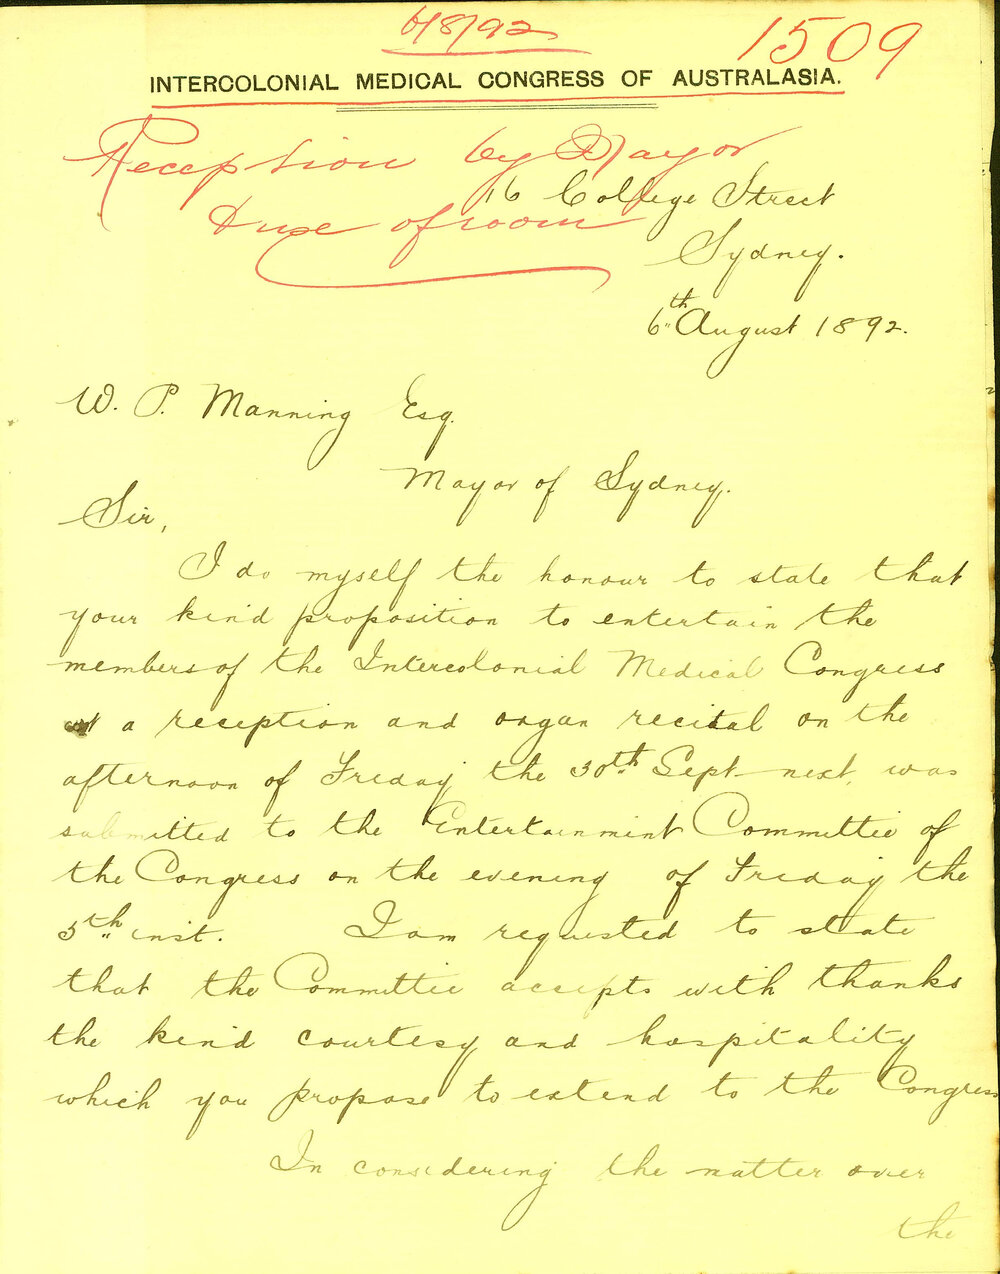 6/8/92
1509
INTERCOLONIAL MEDICAL CONGRESS OF AUSTRALASIA.
Reception by Mayor
& use of room
16 College Street
Sydney.
6th August 1892.
W. P. Manning Esq.
Mayor of Sydney.
Sir,
I do myself the honour to state that
your kind proposition to entertain the
members of the Intercolonial Medical Congress
at a reception and organ recital on the
afternoon of Friday, the 30th Sept next, was
submitted to the Entertainment Committee of
the Congress on the evening of Friday the
5th inst. I am requested to state
that the Committee accepts with thanks
the kind courtesy and hospitality
which you propose to extend to the Congress
In considering the matter over
the